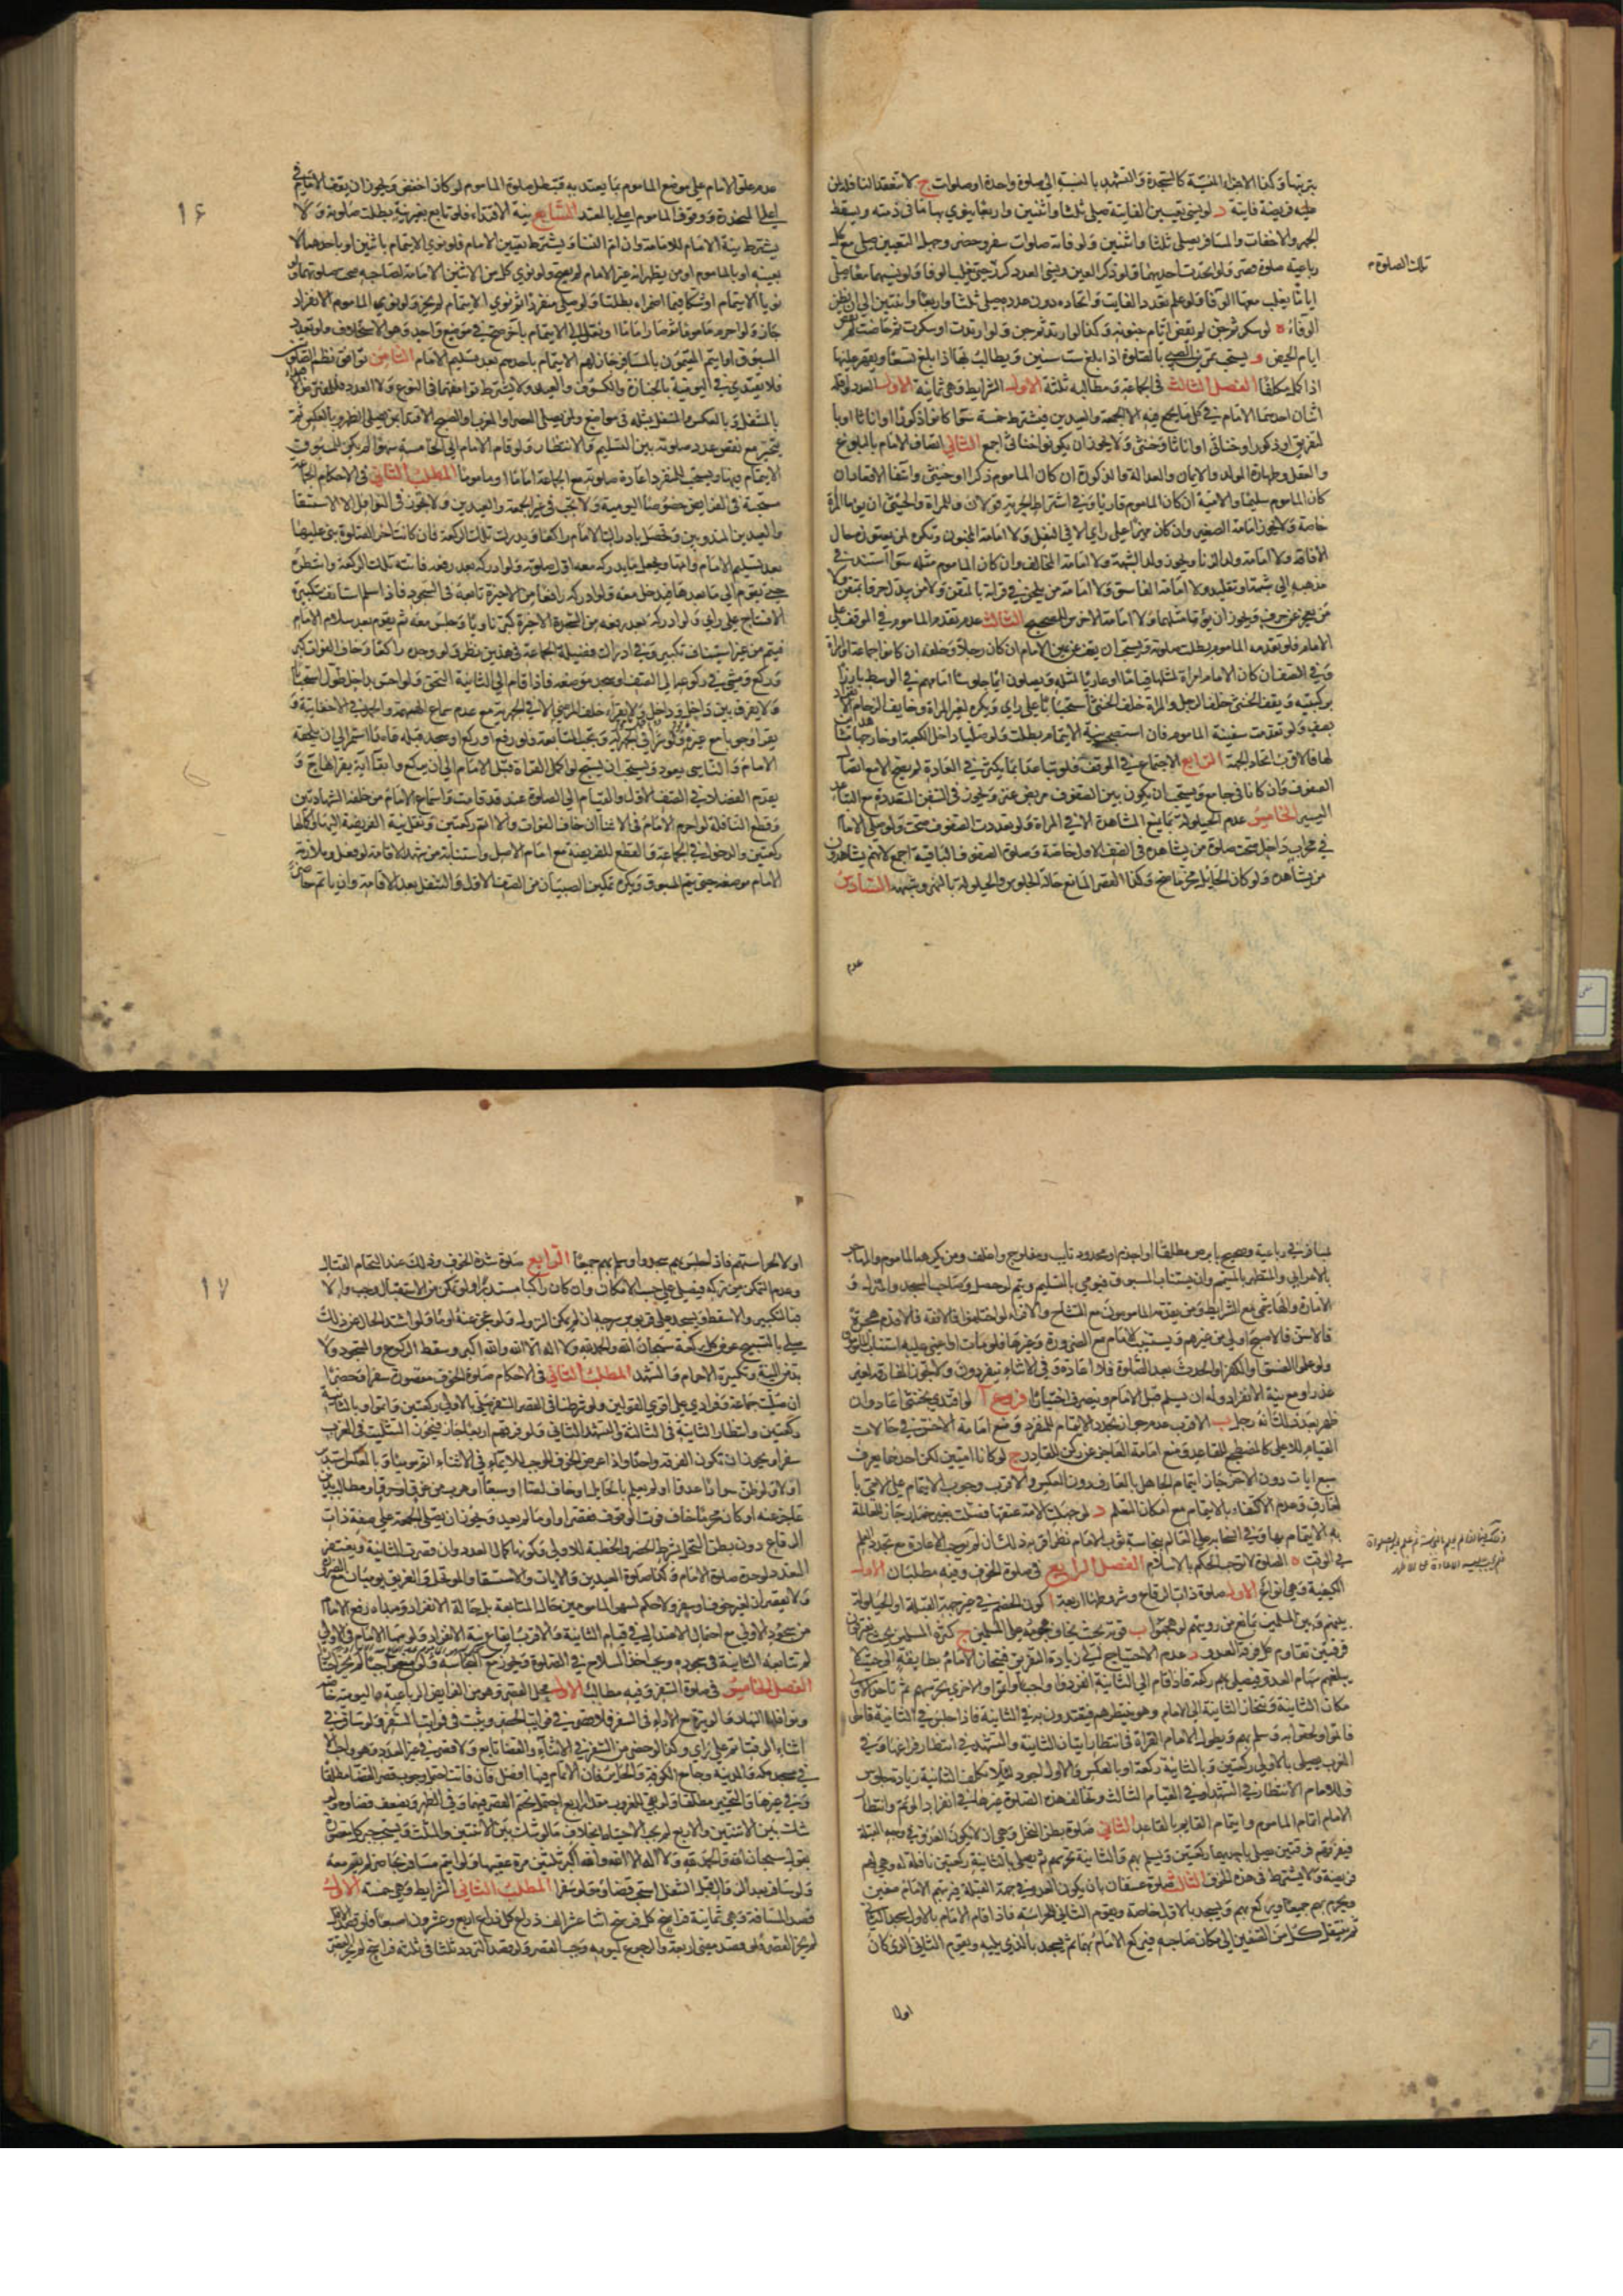 بترتيبها وكذا الاجزاء المنسية كالسجدة والتشهد بالنسبة الى صلوة واحدة او صلوات ج لا تنعقد النافلة لمن
عليه فريضة فايتة د لو نسي تعيين الفايتة صلى ثلثا واثنين واربعا ينوي بها ما في ذمته ويسقط
الجهر والاخفات والمسافر يصلي ثلثا واثنين ولو فاته صلوات سفر وحضر وجهل التعيين صلى مع كل
رباعية صلوة قصر ولو اتحدت احديهما ولو ذكر العين ونسي العدد كرر حتى يغلب الوفا ولو نسيهما معا صلى
تلك الصلوة م
اياما يغلب معها الوفا ولو علم تعدد الفايت واتحاده دون عدده صلى ثلثا واربعا واثنتين الى ان يظن
الوفاء ه لو سكر ثم جن لم يقض ايام جنونه وكذا لو ارتد ثم جن ولو ارتدت او سكرت ثم حاضت لم تقض
ايام الحيض و يستحب تمرين الصبي بالصلوة اذا بلغ ست سنين ويطالب بها اذا بلغ تسعا ويقهر عليها
اذا كمل مكلفا الفصل الثالث في الجماعة ومطالبه ثلثة الاول الشرايط وهي ثمانية الاول العدد واقله
اثنان احدهما الامام في كل ما يجمع فيه الا الجمعة والعيدين فيشترط خمسة سوا كانوا ذكورا او اناثا او با
لتفريق او ذكورا وخناثى او اناثا وخنثى ولا يجوز ان يكونوا خناثى اجمع الثاني اتصاف الامام بالبلوغ
والعقل وطهارة المولد والايمان والعدالة والذكورة ان كان الماموم ذكرا او خنثى وانتفا الاقعاد ان
كان الماموم سليما والامية ان كان الماموم قاريا وفي اشتراط الحرية قولان وللمراة والخنثى ان يؤما المرأة
خاصة ولا يجوز امامة الصغير وان كان مميزا على راي الا في النفل ولا امامة المجنون وتكره لمن يعتوره حال
الافاقة ولا امامة ولد الزنا ويجوز ولد الشبهة ولا امامة المخالف وان كان الماموم مثله سوا استند في
مذهبه الى شبهة او تقليد ولا امامة الفاسق ولا امامة من يلحن في قرائته بالمتقن ولا من يبدل حرفا بمتقن ولا
من يعجز عن حرف ويجوز ان يؤما مثلهما ولا امامة الاخرس للصحيح الثالث عدم تقدم الماموم في الموقف على
الامام فلو تقدمه الماموم بطلت صلوته ويستحب ان يقف عن يمين الامام ان كان رجلا وخلفه ان كانوا جماعة او امراة
وفي الصف ان كان الامام امراة لمثلها قياما او عاريا لمثله ويصلون ايماء جلوسا امامهم في الوسط بارزا
بركبتيه ويقف الخنثى خلف الرجل والمراة خلف الخنثى استحبابا على راي ويكره لغير المراة وخايف الزحام الانفراد
بصف ولو تقدمت سفينة الماموم فان استصحب نية الايتمام بطلت ولو صليا داخل الكعبة او خارجها مشاهدين
لها فالاقرب اتحاد الجهة الرابع الاجتماع في الموقف فلو تباعدا بما يكثر في العادة لم يصح الا مع اتصال
الصفوف وان كانا في جامع ويستحب ان يكون بين الصفوف مربض عنز ويجوز في السفن المتعددة مع التباعد
اليسير الخامس عدم الحيلولة بما يمنع المشاهدة الا في المراة ولو تعددت الصفوف صحت ولو صلى الامام
في محراب داخل صحت صلوة من يشاهده في الصف الاول خاصة وصلوة الصفوف الباقية اجمع لانهم يشاهدون
من يشاهده ولو كان الحايل مخرما صح وكذا القصير المانع حالة الجلوس والحيلولة بالنهر وشبهه السادس
عدم
۱۶
عدم علو الامام على موضع الماموم بما يعتد به فتبطل صلوة الماموم لو كان اخفض ويجوز ان يقف الامام في
اعلى المنحدرة ووقوف الماموم اعلى بالمعتد السابع نية الاقتداء فلو تابع بغير نية بطلت صلوته ولا
يشترط نية الامام للامامة وان ام النسا ويشترط تعيين الامام فلو نوى الايتمام باثنين او باحدهما لا
بعينه او بالماموم او من يظهر انه غير الامام لم يصح ولو نوى كل من الاثنين الامامة لصاحبه صحت صلوتهما ولو
نويا الايتمام او شكا فيما اضمراه بطلتا ولو صلى منفردا ثم نوى الايتمام لم يجز ولو نوى الماموم الانفراد
جاز ولو احرم ماموما ثم صار اماما او نقل الى الايتمام باخر صح في موضع واحد وهو الاستخلاف ولو تعدد
المسبوق او ايتم المقيمون بالمسافر جاز لهم الايتمام باحدهم بعد تسليم الامام الثامن توافق نظم الصلوتين
فلا يقتدي في اليومية بالجنازة والكسوف والعيد ولا يشترط توافقهما في النوع ولا العدد فللمفترض الاقتداء
بالمتنفل وبالعكس والمتنفل بمثله في مواضع ولمن يصلي العصر او المغرب او الصبح الاقتداء بمن يصلي الظهر وبالعكس ثم
يتخير مع نقص عدد صلوته بين التسليم والانتظار ولو قام الامام الى الخامسة سهوا لم يكن للمسبوق
الايتمام فيها ويستحب للمنفرد اعادة صلوته مع الجماعة اماما او ماموما المطلب الثاني في الاحكام الجماعة
مستحبة في الفرايض خصوصا اليومية ولا تجب في غير الجمعة والعيدين ولا تجوز في النوافل الا الاستسقا
والعيدين المندوبين وتحصل بادراك الامام راكعا ويدرك تلك الركعة فان كانت اخر الصلوة بنى عليها
بعد تسليم الامام واتمها ويجعل ما يدركه معه اول صلوته ولو ادركه بعد رفعه فاتته تلك الركعة وانتظره
حتى يقوم الى ما بعدها فيدخل معه ولو ادركه رافعا من الاخيرة تابعه في السجود فاذا سلم استانف بتكبيرة
الافتتاح على راي ولو ادركه بعد رفعه من السجدة الاخيرة كبر ناويا وجلس معه ثم يقوم بعد سلام الامام
فيتم من غير استيناف تكبير وفي ادراك فضيلة الجماعة في هذين نظر ولو وجده راكعا وخاف الفوات كبر
وركع ومشى في ركوعه الى الصف او سجد موضعه فاذا قام الى الثانية التحق ولو احس بداخل طول استحبابا
ولا يفرق بين داخل وداخل ولا يقراء خلف المرضي الا في الجهرية مع عدم سماع الهمهمة والحمد في الاخفاتية و
يقرا وجوبا مع غيره ولو سرا في الجهرية وتجب المتابعة فلو رفع او ركع او سجد قبله عامدا استمر الى ان يلحقه
الامام والناسي يعود ويستحب ان يسبح لو اكمل القراة قبل الامام الى ان يركع وابقا اية يقراها ح و
يقدم الفضلاء في الصف الاول والقيام الى الصلوة عند قد قامت واسماع الامام من خلفه الشهادتين
وقطع النافلة لو احرم الامام في الاثنا ان خاف الفوات والا اتم ركعتين ونقل نية الفريضة اليها واكمالها
ركعتين والدخول في الجماعة والقطع للفريضة مع امام الاصل واستنابة من شهد الاقامة لو فعل وملازمة
الامام موضعه حتى يتم المسبوق ويكره تمكين الصبيان من الصف الاول والتنفل بعد الاقامة وان ياتم حاضر
بمسافر في رباعية وصحيح بابرص مطلقا او اجذم او محدود تايب ومفلوج واغلف ومن يكرهه الماموم والمهاجر
بالاعرابي والمتطهر بالمتيمم وان يستناب المسبوق فيومي بالتسليم ويتم لو حصل وصاحب المسجد والمنزل و
الامارة والهاشمي مع الشرايط ومن يقدمه المامومون مع التشاح والاقراء لو اختلفوا فالافقه فالاقدم هجرة
فالاسن فالاصبح اولى من غيرهم ويستنيب الامام مع الضرورة وغيرها فلو مات او اغمي عليه استناب المامومون
ولو علموا الفسق او الكفر او الحدث بعد الصلوة فلا اعادة وفي الاثناء ينفردون ولا يجوز المفارقة لغير
عذر او مع نية الانفراد وله ان يسلم قبل الامام وينصرف اختيارا فروع ا لو اقتدى بخنثى اعاد وان
ظهر بعد ذلك انه رجل ب الاقرب عدم جواز تجدد الايتمام للمنفرد ومنع امامة الاخس في حالات
القيام للاعلى كالمضطجع للقاعد ومنع امامة العاجز عن ركن للقادر ج لو كانا اميين لكن احدهما يعرف
سبع ايات دون الاخر جاز ايتمام الجاهل بالعارف دون العكس والاقرب وجوب الايتمام على الامي با
لعارف وعدم الاكتفاء بالايتمام مع امكان التعلم د لو جهلت الامة عتقها فصلت بغير خمار جاز للعالمة
به الايتمام بها وفي انسحابه على العالم بنجاسة ثوب الامام نظر اقربه ذلك ان لم نوجب الاعادة مع تجدد العلم
في الوقت ه الصلوة لا توجب الحكم بالاسلام الفصل الرابع في صلوة الخوف وفيه مطلبان الاول
الكيفية وهي انواع الاول صلوة ذات الرقاع وشروطها اربعة ا كون الخصم في غير جهة القبلة او الحيلولة
بينهم وبين المسلمين بما يمنع من رؤيتهم لو هجموا ب قوته بحيث يخاف هجومه على المسلمين ج كثرة المسلمين بحيث يفترقون
فرقتين تقاوم كل فرقة العدو د عدم الاحتياج الى زيادة التفريق فينحاز الامام بطايفة الى حيث لا
يبلغهم سهام العدو فيصلي بهم ركعة فاذا قام الى الثانية انفردوا واجبا واتموا والاخرى تحرسهم ثم تاخذ الاولى
مكان الثانية وتنحاز الثانية الى الامام وهو ينتظرهم فيقتدون به في الثانية فاذا جلس في الثانية قاموا
فاتموا ولحقوا به وسلم بهم ويطول الامام القراة في انتظار اتيان الثانية والتشهد في انتظار فراغها وفي
المغرب يصلي بالاولى ركعتين وبالثانية ركعة او بالعكس والاول اجود لئلا تكلف الثانية زيادة جلوس
وللامام الانتظار في التشهد او في القيام الثالث وتخالف هذه الصلوة غيرها في انفراد الموتم وانتظار
الامام اتمام الماموم وايتمام القايم بالقاعد الثاني صلوة بطن النخل وهي ان لا يكون العدو في وجه القبلة
فيفرقهم فرقتين يصلي باحديهما ركعتين ويسلم بهم والثانية تحرسهم ثم يصلي بالثانية ركعتين نافلة له وهي لهم
فريضة ولا يشترط في هذه الخوف الثالث صلوة عسفان بان يكون العدو في جهة القبلة فيرتبهم الامام صفين
ويحرم بهم جميعا ويركع بهم ويسجد بالاول خاصة ويقوم الثاني للحراسة فاذا قام الامام بالاول سجد الثاني
ثم ينتقل كل من الصفين الى مكان صاحبه فيركع الامام بهما ثم يسجد بالذي يليه ويقوم الثاني الذي كان
اولا
۱۷
اولا لحراستهم فاذا جلس بهم سجدوا وسلم بهم جميعا الرابع صلوة شدة الخوف وذلك عند التحام القتال
وعدم التمكن من تركه فيصلي على حسب الامكان وان كان راكبا مستدبرا ولو تمكن من الاستقبال وجب والا
فبالتكبير والا سقط ويسجد على قربوس سرجه ان لم يمكن النزول ولو عجز عنه اومأ ولو اشتد الحال عن ذلك
صلى بالتسبيح عوض كل ركعة سبحان الله والحمد لله ولا اله الا الله والله اكبر وسقط الركوع والسجود ولا
بد من النية وتكبيرة الاحرام والتشهد المطلب الثاني في الاحكام صلوة الخوف مقصورة سفرا وحضرا
ان صليت جماعة وفرادى على اقوى القولين ولو شرطنا في القصر السفر صلى بالاولى ركعتين واتموا وبالثانية
ركعتين وانتظار الثانية في الثالثة او في التشهد الثاني ولو فرقهم اربعا جاز فيجوز التثليث في المغرب
سفرا ويجوز ان تكون الفرقة واحدا واذا عرض الخوف الموجب للايماء في الاثناء اتم موميا وبالعكس استدبر
اولا ولو ظن سوادا عدوا او لم يعلم بالحايل او خاف لصا او سبعا او هرب من حرق او غرق او مطالب بدين
عاجز عنه او كان محرما خاف فوت الوقوف فقصر او اومأ لم يعد ويجوز ان يصلي الجمعة على صفة ذات
الرقاع دون بطن النخل بشرط الحضر والخطبة للاولى وكونها كمال العدد وان قصرت الثانية ويغتفر
التعدد لوحدة صلوة الامام وكذا صلوة العيدين والايات والاستسقا والموتحل والغريق يوميان مع الضرورة
ولا يقصران لغير خوف او سفر ولا حكم لسهو المامومين حال المتابعة بل حالة الانفراد ومبداه رفع الامام
من سجود الاولى مع احتمال الاعتدال في قيام الثانية والاقرب ايقاع نية الانفراد ولو سها الامام في الاولى
لم تتابعه الثانية في سجوده ويجب اخذ السلاح في الصلوة ويجوز مع النجاسة ولو منع واجبا لم يجز اختيارا
الفصل الخامس في صلوة السفر وفيه مطالب الاول محل القصر وهو من الفرايض الرباعية واليومية خاصة
ونوافلها النهارية والوتيرة مع الاداء في السفر فلا قصر في فوايت الحضر ويثبت في فوايت السفر ولو سافر في
اثناء الوقت اتم على راي وكذا لو حضر من السفر في الاثناء والقضا تابع ولا قصر في غير العدد وهو واجب الا
في مسجد مكة والمدينة وجامع الكوفة والحاير فان الاتمام فيها افضل فان فاتت احتمل وجوب قصر القضا مطلقا
وفي غيرها والتخيير مطلقا ولو بقي للغروب مقدار اربع احتمل تحتم القصر فيهما وفي الظهر ويضعف قضاؤه ولو
شك بين الاثنتين والاربع لم يجب الاحتياط بخلاف ما لو شك بين الاثنتين والثلث ويستحب جبر كل مقصورة
بقول سبحان الله والحمد لله ولا اله الا الله والله اكبر ثلثين مرة عقيبها ولو ايتم مسافر بحاضر لم يتم معه
ولو سافر بعد الزوال قبل التنفل استحب قضاؤه ولو سفرا المطلب الثاني الشرايط وهي خمسة الاول
قصد المسافة وهي ثمانية فراسخ كل فرسخ اثنا عشر الف ذراع كل ذراع اربع وعشرون اصبعا ولو قصد الاقل
لم يجز القصر ولو قصد مضي اربعة والرجوع ليومه وجب القصر ولو قصد التردد ثلثا في ثلثة فراسخ لم يجز القصر